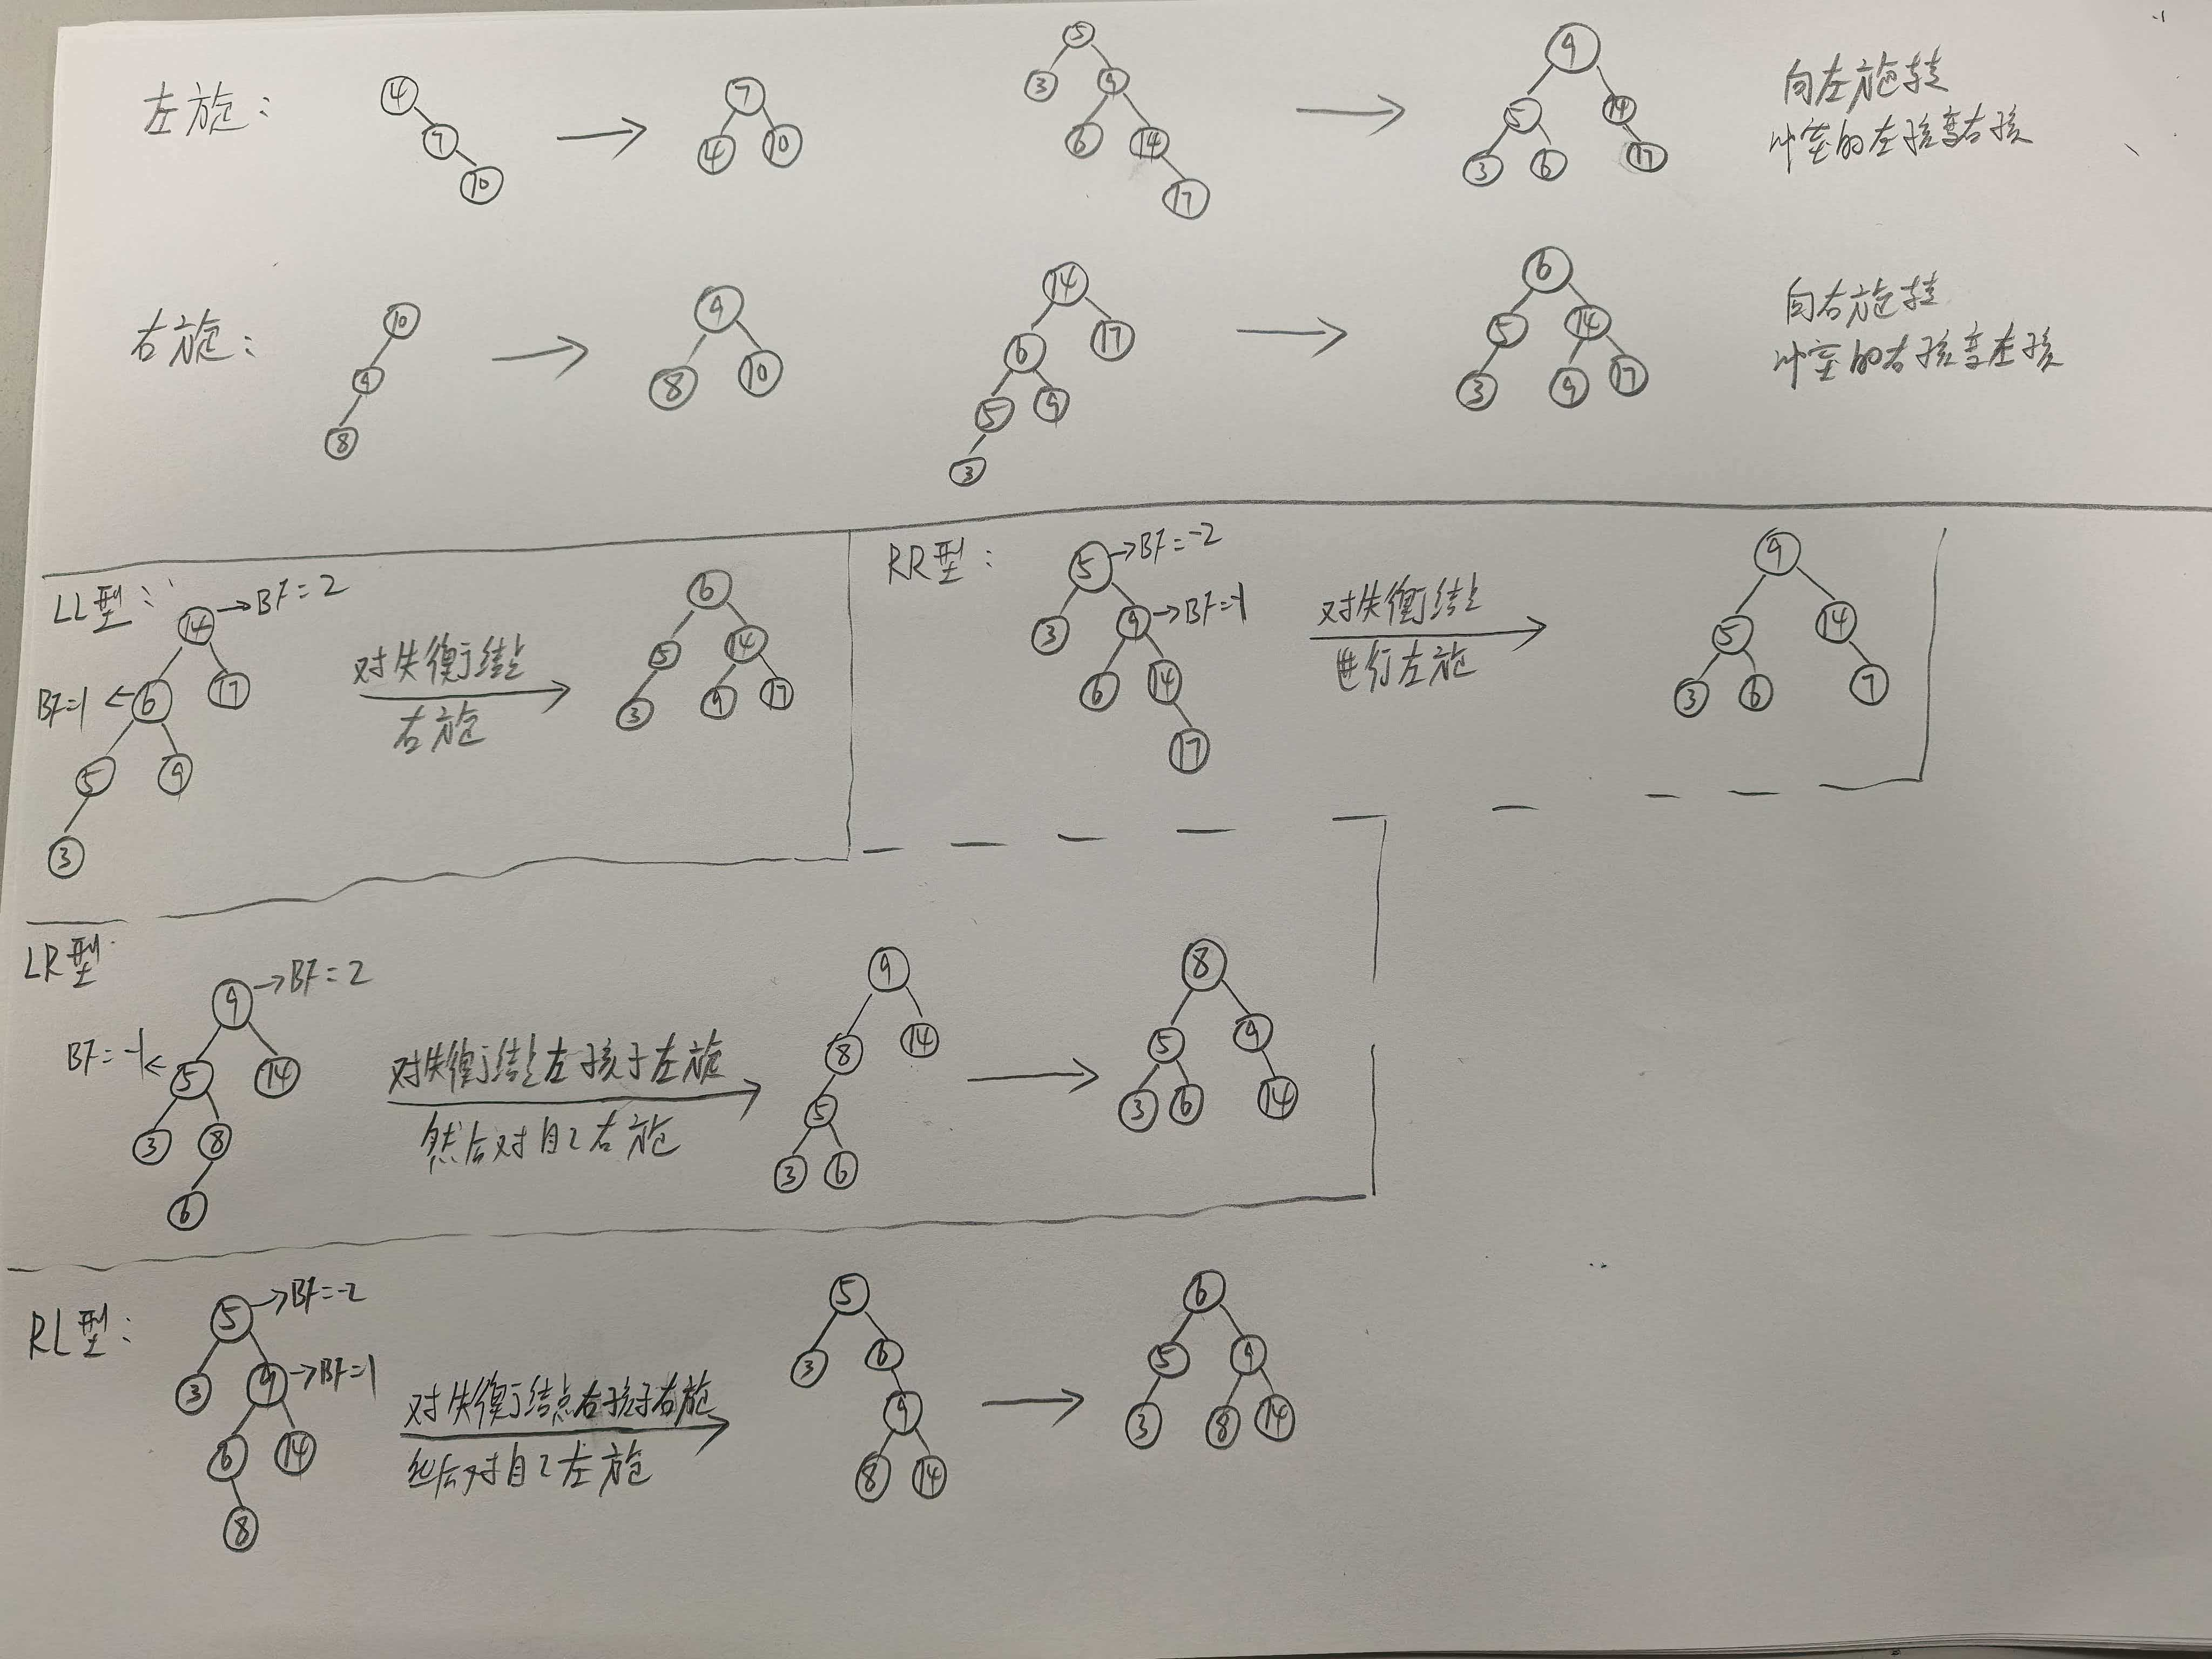 左旋：
4
7
10
7
4 10
5
3 9
6 14
17
9
5 14
3 6 17
向左旋转
冲突的左孩变右孩
右旋：
10
9
8
9
8 10
14
6 17
5 9
3
6
5 14
3 9 17
向右旋转
冲突的右孩变左孩
LL型：
14 →BF=2
BF=1 ← 6 17
5 9
3
对失衡结点
右旋
6
5 14
3 9 17
RR型：
5 →BF=-2
3 9 →BF=-1
6 14
17
对失衡结点
进行左旋
9
5 14
3 6 7
LR型
9 →BF=2
BF=-1 ← 5 14
3 8
6
对失衡结点左孩子左旋
然后对自己右旋
9
8 14
5
3 6
8
5 9
3 6 14
RL型：
5 →BF=-2
3 9 →BF=1
6 14
8
对失衡结点右孩子右旋
然后对自己左旋
5
3 6
9
8 14
6
5 9
3 8 14